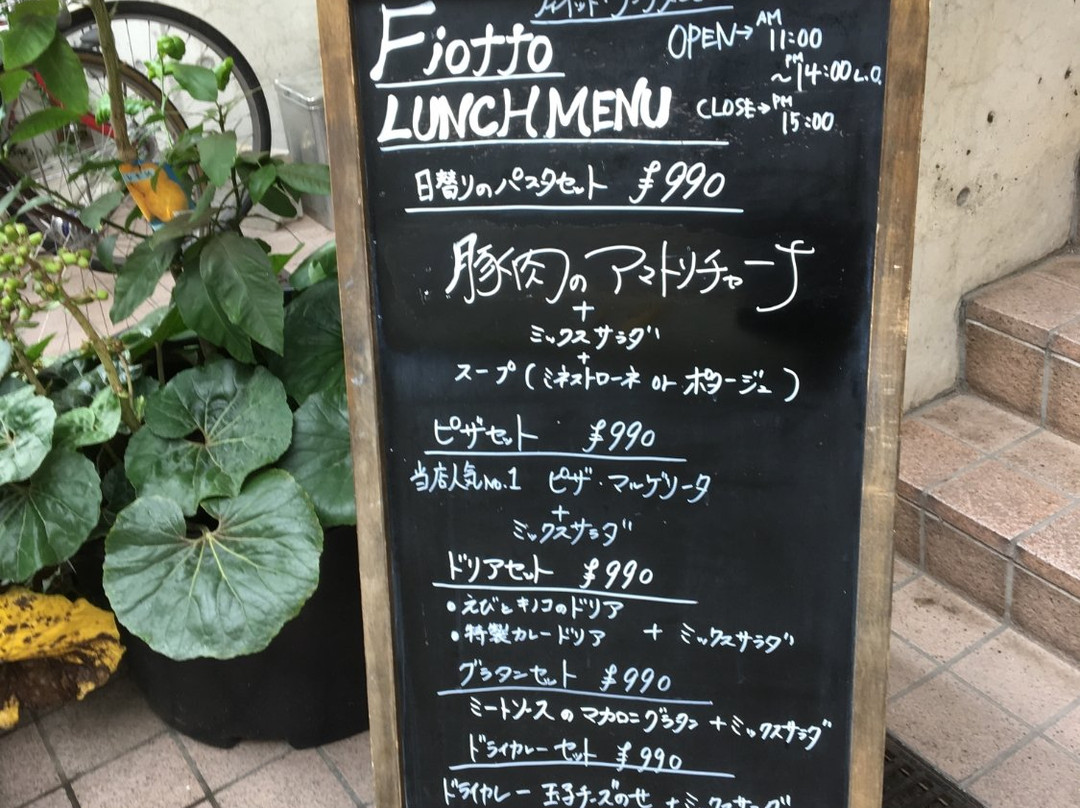 Fiotto
OPEN→AM 11:00
~PM 14:00 L.O.
LUNCH MENU
CLOSE→PM 15:00
日替りのパスタセット ¥990
豚肉のアマトリチャーナ
+
ミックスサラダ
+
スープ(ミネストローネ or ポタージュ)
ピザセット ¥990
当店人気No.1 ピザ・マルゲリータ
+
ミックスサラダ
ドリアセット ¥990
・えびとキノコのドリア
・特製カレードリア + ミックスサラダ
グラタンセット ¥990
ミートソースのマカロニグラタン+ミックスサラダ
ドライカレーセット ¥990
ドライカレー 玉子チーズのせ +ミックスサラダ